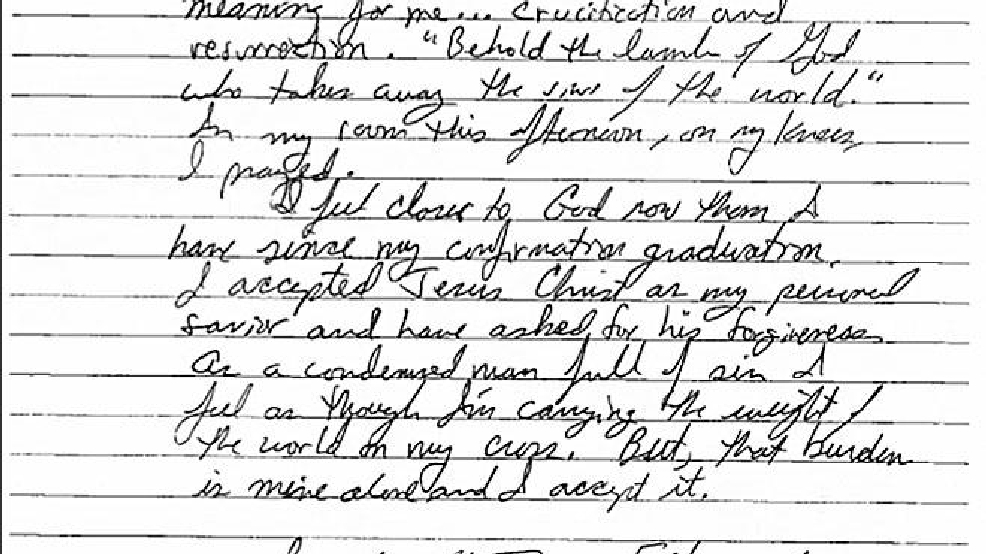 meaning for me... Crucifiction and
resurrection. "Behold the lamb of God
who takes away the sins of the world."
In my room this afternoon, on my knees,
I prayed.
I feel closer to God now than I
have since my confirmation graduation.
I accepted Jesus Christ as my personal
savior and have asked for his forgiveness
As a condemned man full of sin I
feel as though I'm carrying the weight of
the world on my cross. But, that burden
is mine alone and I accept it.